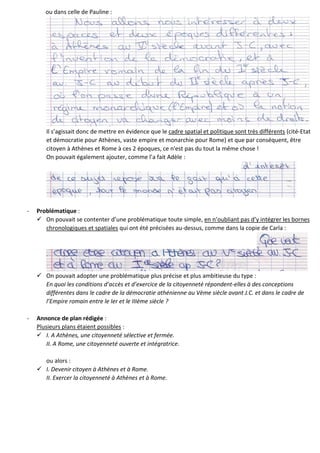 ou dans celle de Pauline :
Nous allons nous intéresser à deux
espaces et deux époques différentes :
à Athènes au Ve siècle avant J-C, avec
l'invention de la démocratie, et à
l'Empire romain de la fin du Ier siècle
au J-C au début du IIe siècle après J-C,
où l'on passe d'une République à un
régime monarchique (l'Empire) et où la notion
de citoyen va changer avec moins de droits.
Il s'agissait donc de mettre en évidence que le cadre spatial et politique sont très différents (cité-Etat
et démocratie pour Athènes, vaste empire et monarchie pour Rome) et que par conséquent, être
citoyen à Athènes et Rome à ces 2 époques, ce n'est pas du tout la même chose !
On pouvait également ajouter, comme l'a fait Adèle :
d'intérêt
de ce sujet repose sur le fait qu'à cette
époque, tout le monde n'était pas citoyen
- Problématique :
✓ On pouvait se contenter d'une problématique toute simple, en n'oubliant pas d'y intégrer les bornes
chronologiques et spatiales qui ont été précisées au-dessus, comme dans la copie de Carla :
Que veut
dire être citoyen à Athènes au Ve siècle av JC
et à Rome au Ier siècle ap JC?
✓ On pouvait adopter une problématique plus précise et plus ambitieuse du type :
En quoi les conditions d'accès et d'exercice de la citoyenneté répondent-elles à des conceptions
différentes dans le cadre de la démocratie athénienne au Vème siècle avant J.C. et dans le cadre de
l'Empire romain entre le Ier et le IIIème siècle ?
- Annonce de plan rédigée :
Plusieurs plans étaient possibles :
✓ I. A Athènes, une citoyenneté sélective et fermée.
II. A Rome, une citoyenneté ouverte et intégratrice.
ou alors :
✓ I. Devenir citoyen à Athènes et à Rome.
II. Exercer la citoyenneté à Athènes et à Rome.